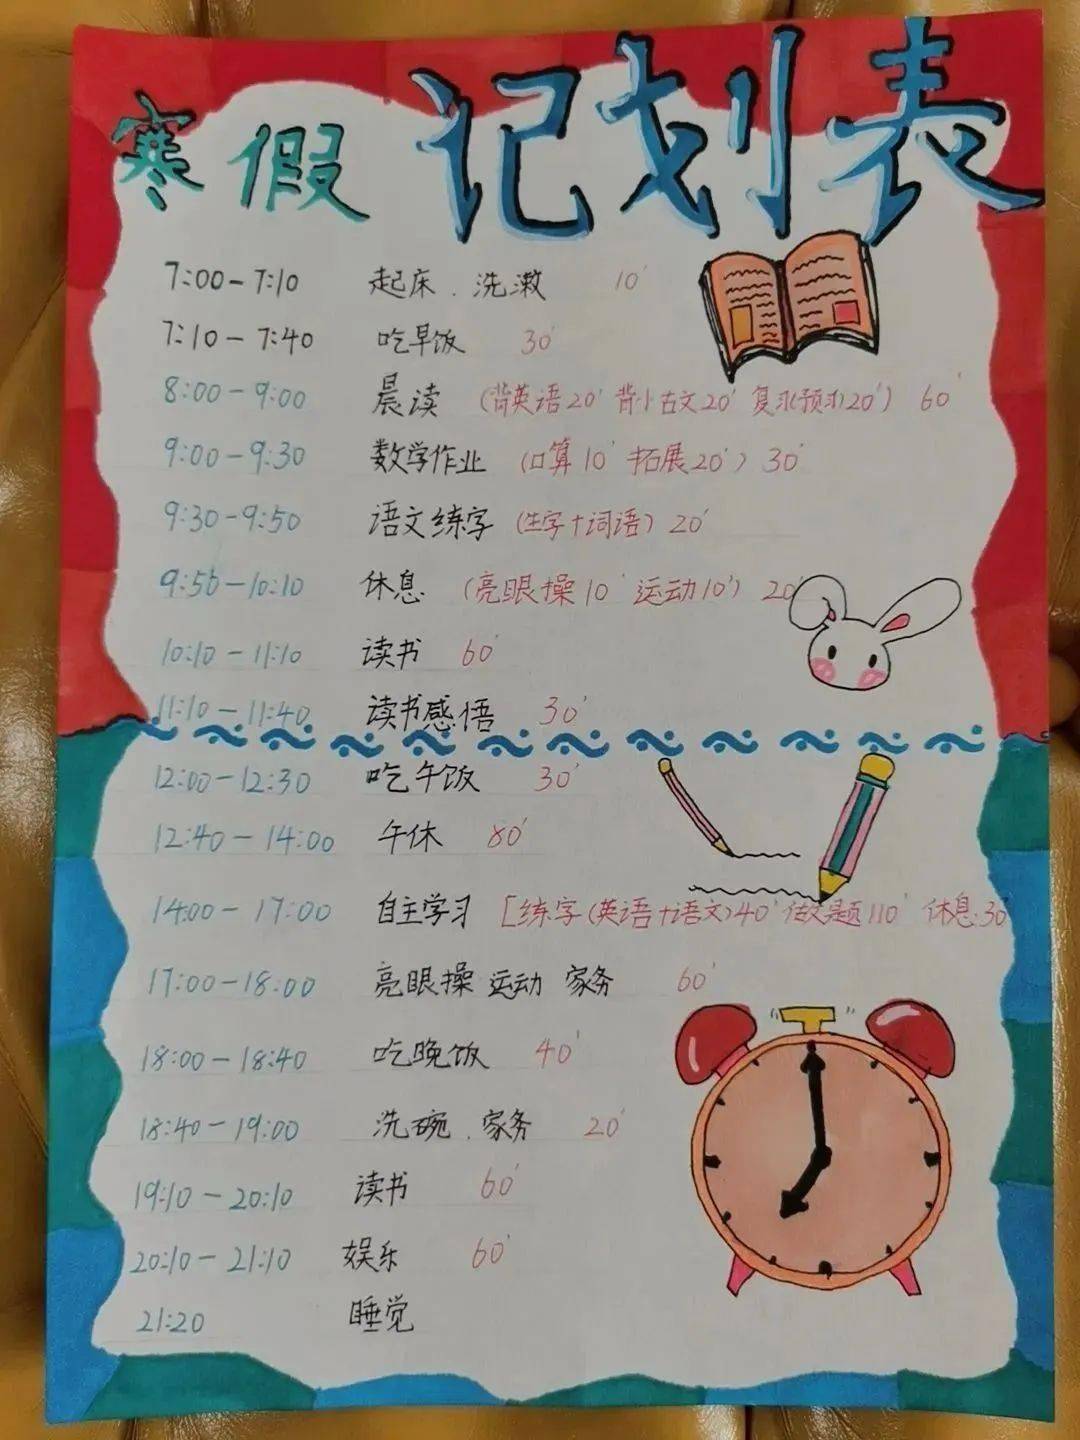 寒假 记划表
7:00-7:10 起床、洗漱 10'
7:10-7:40 吃早饭 30'
8:00-9:00 晨读 (背英语20' 背小古文20' 复习(预习)20') 60'
9:00-9:30 数学作业 (口算10' 拓展20') 30'
9:30-9:50 语文练字 (生字+词语) 20'
9:50-10:10 休息 (亮眼操10' 运动10') 20'
10:10-11:10 读书 60'
11:10-11:40 读书感悟 30'
12:00-12:30 吃午饭 30'
12:40-14:00 午休 80'
14:00-17:00 自主学习 [练字(英语+语文)40' 110' 休息:30'
17:00-18:00 亮眼操 运动 家务 60'
18:00-18:40 吃晚饭 40'
18:40-19:00 洗碗、家务 20'
19:10-20:10 读书 60'
20:10-21:10 娱乐 60'
21:20 睡觉